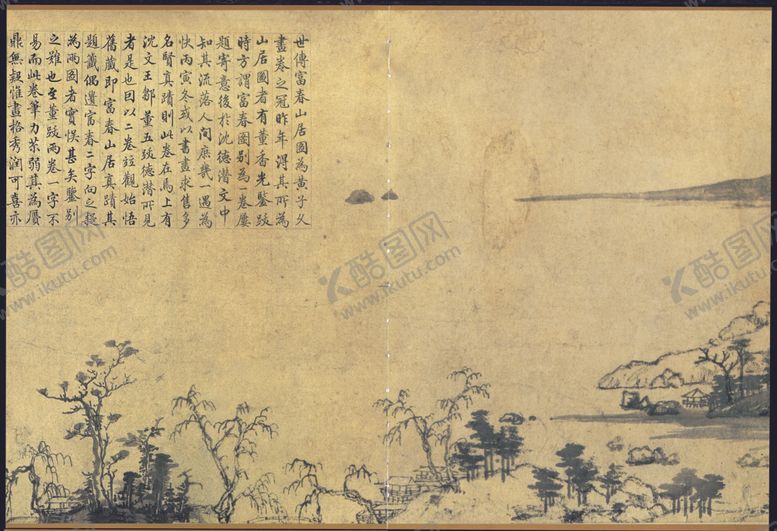 世傳富春山居圖為黃子久
畫卷之冠昨年得其所為
山居圖者有董香光鑒跋
時方謂富春圖別為一卷屢
題寄意後於沈德潛文中
知其流落人間庶幾一遇為
快丙寅冬或以書畫求售多
名賢真蹟則此卷在焉上有
沈文王鄒董五跋德潛所見
者是也因以二卷竝觀始悟
舊藏即富春山居真蹟其
題籤偶遺富春二字向之疑
為兩圖者實悞甚矣鑒別
之難也至董跋兩卷一字不
易而此卷筆力苶弱其為贋
鼎無疑惟畫格秀潤可喜亦
酷图网
www.ikutu.com
酷图网
www.ikutu.com
酷图网
www.ikutu.com